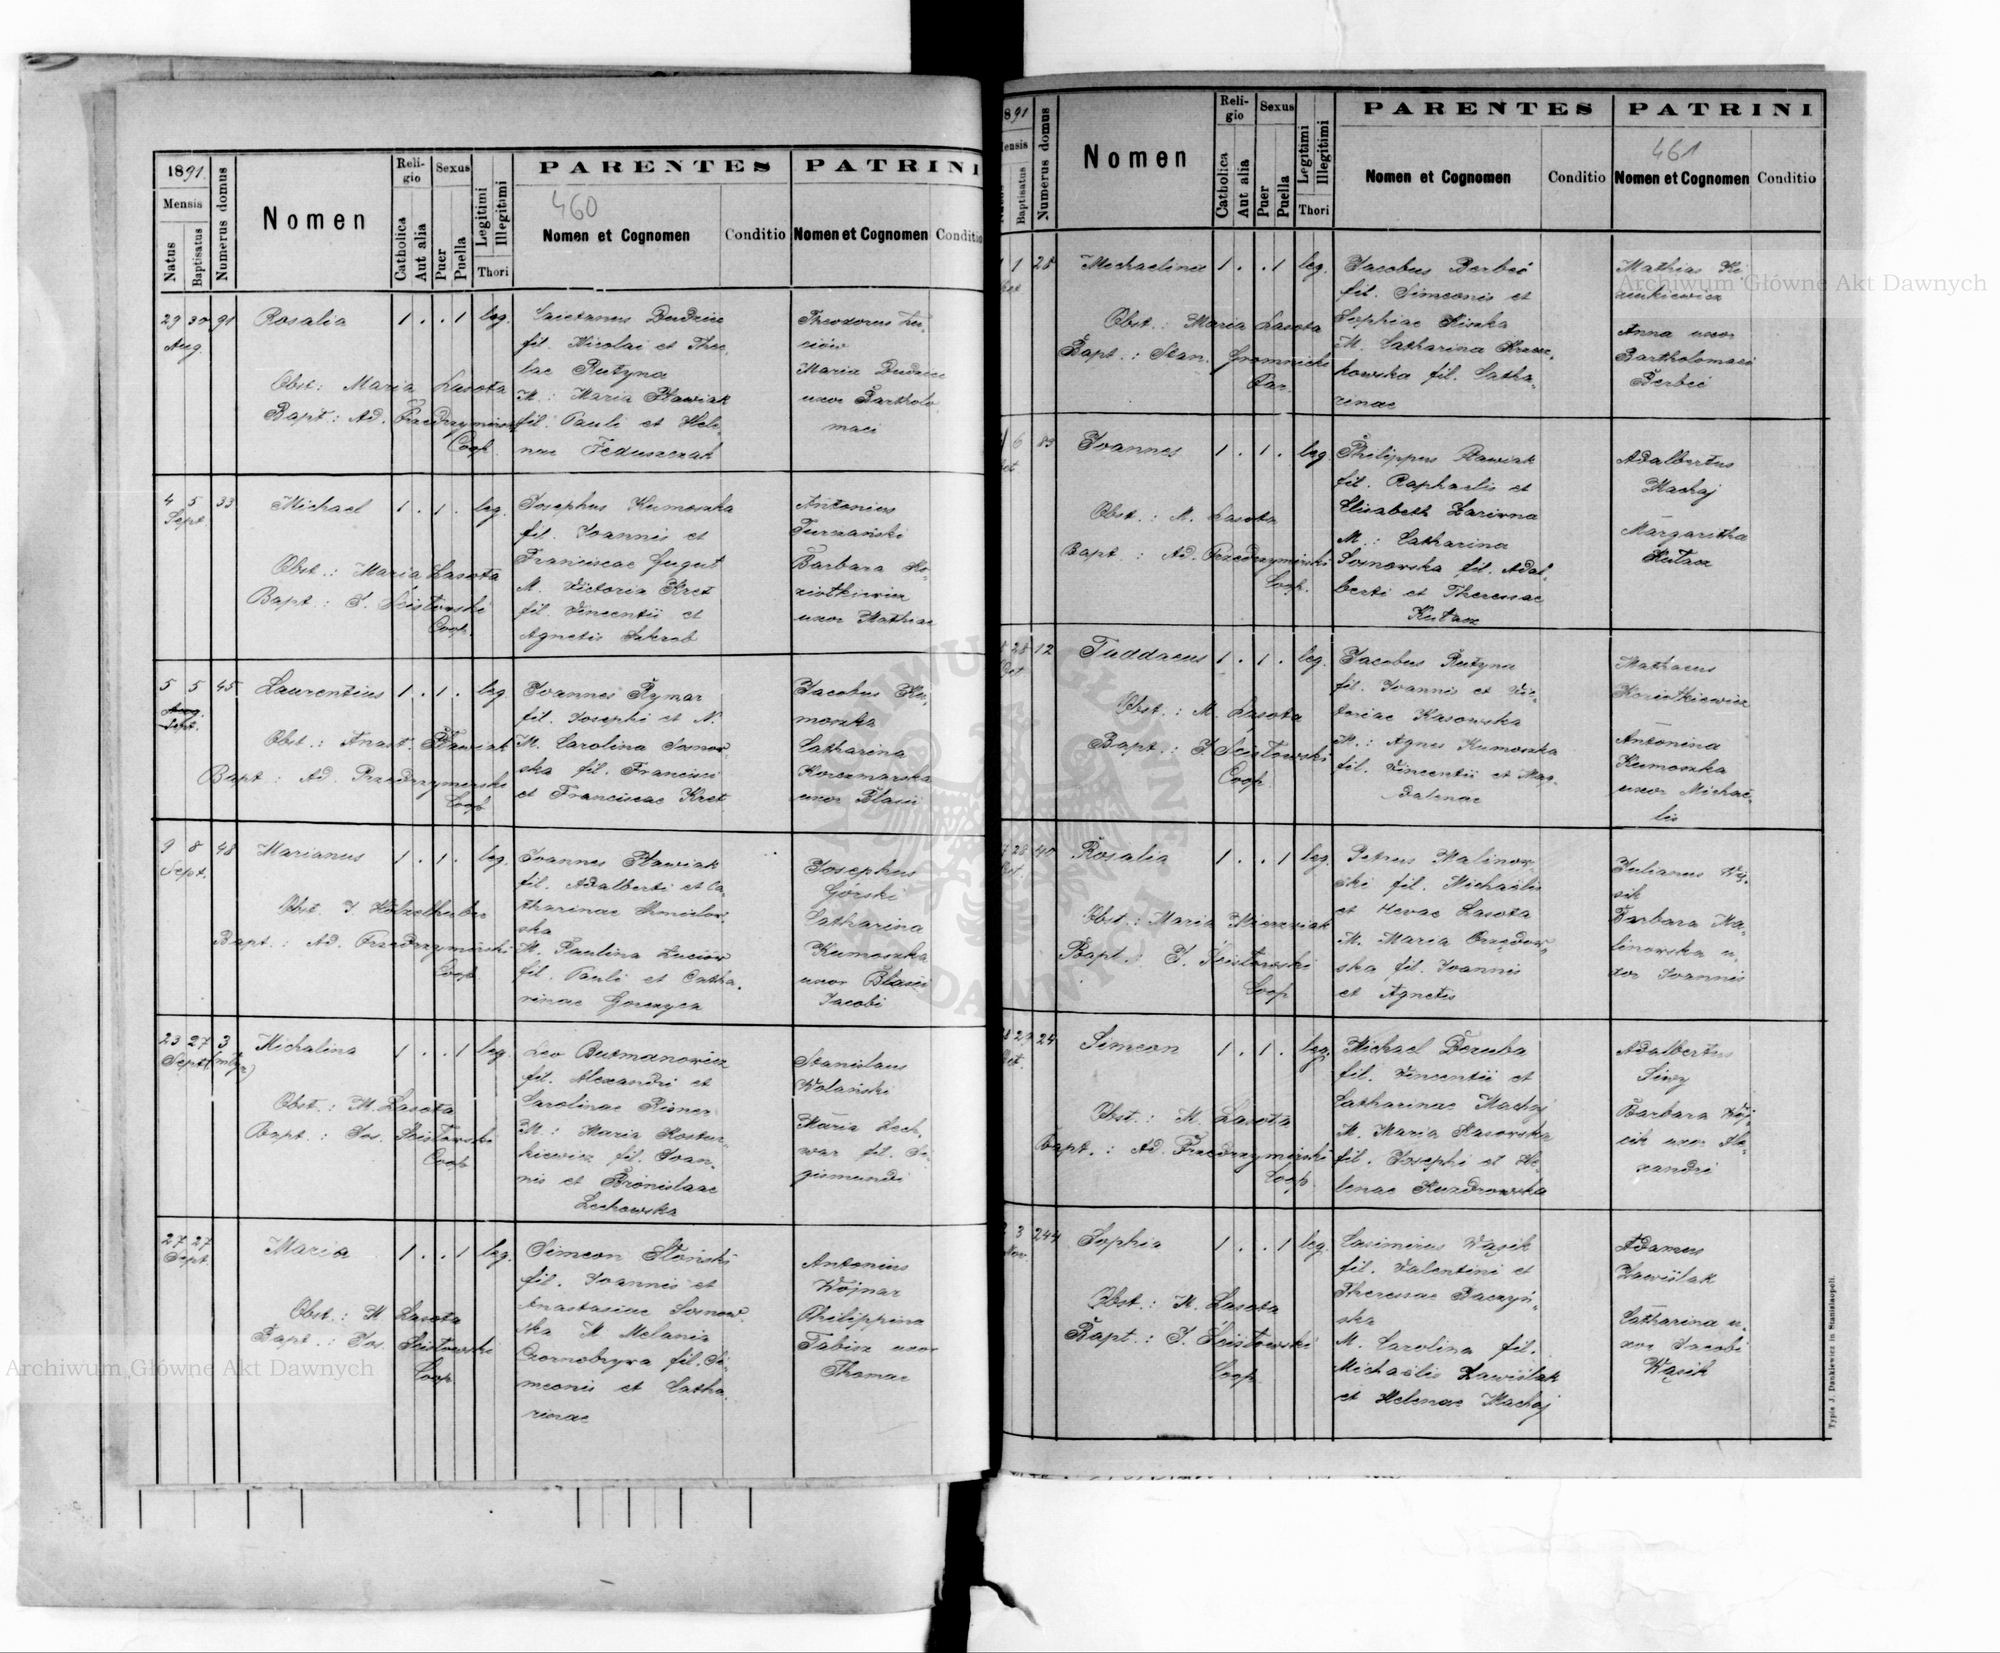 1891
Mensis
Natus
Baptisatus
Numerus domus
Nomen
Religio
Catholica
Aut alia
Sexus
Puer
Puella
Legitimi
Illegitimi
Thori
PARENTES
460
Nomen et Cognomen
Conditio
PATRINI
Nomen et Cognomen
Conditio
29 30 91 Rosalia 1 . . 1 leg.
Aug.
Obst: Maria Lasota
Bapt: Ad. Przedrzymirski
Coop.
Caietanus Dudzic
fil. Nicolai et Thec-
lae Rutyna
M.: Maria Pławiak
fil. Pauli et Hele-
nae Feduszczak
Theodorus Łu-
ciów
Maria Dudzic
uxor Bartholo
maei
4 5 33 Michael 1 . 1 . leg.
Sept.
Obst.: Maria Lasota
Bapt.: J. Scisłowski
Coop.
Josephus Kumoszka
fil. Joannis et
Franciscae Gugut
M. Victoria Kret
fil. Vincentii et
Agnetis
Antonius
Turzański
Barbara Ko-
ziołkiewicz
uxor Mathiae
5 5 45 Laurentius 1 . 1 . leg.
Aug.
Sept.
Obst.: Anast. Pławiak
Bapt: Ad. Przedrzymirski
Coop
Joannes Rymar
fil. Josephi et N.
M. Carolina Sosnow
ska fil. Francisci
et Franciscae Kret
Jacobus Ku-
moszka
Catharina
Korczmarska
uxor Blasii
9 8 48 Marianus 1 . 1 . leg.
Sept.
Obst. J.
Bapt.: Ad. Przedrzymirski
Coop
Joannes Pławiak
fil. Adalberti et Ca-
tharinae
ska
M. Paulina Łuciów
fil. Pauli et Catha-
rinae Gorczyca
Josephus
Górski
Catharina
Kumoszka
uxor Blasii
Jacobi
23 27 3 Michalina 1 . . 1 leg.
Sept.
Obst.: M. Lasota
Bapt.: Jos. Scisłowski
Coop
Leo Butmanowicz
fil. Alexandri et
Carolinae Pisner
M.: Maria Kostur-
kiewicz fil. Joan-
nis et Bronislaae
Lechowska
Stanislaus
Wolański
Maria Lech-
war fil. Si-
gismundi
27 27 Maria 1 . . 1 leg.
Sept.
Obst.: M Lasota
Bapt.: Jos. Scisłowski
Coop
Simeon Słoński
fil. Joannis et
Anastasiae Sosnow-
ska M. Melania
Czornobrywa fil. Si-
meonis et Catha-
rinae
Antonius
Wojnar
Philippina
Tabisz uxor
Thomae
891
ensis
Baptisatus
Numerus domus
Nomen
Religio
Catholica
Aut alia
Sexus
Puer
Puella
Legitimi
Illegitimi
Thori
PARENTES
Nomen et Cognomen
Conditio
PATRINI
461
Nomen et Cognomen
Conditio
1 28 Michaelina 1 . . 1 leg.
Obst.: Maria Lasota
Bapt.: Stan. Gromnicki
Par.
Jacobus Berbeć
fil. Simeonis et
Sophiae Kiszka
M. Catharina Kracz-
kowska fil. Catha-
rinae
Mathias
Anna uxor
Bartholomaei
Berbeć
6 83 Joannes 1 . 1 . leg
Obst.: M. Lasota
Bapt.: Ad. Przedrzymirski
Coop.
Philippus Pławiak
fil. Raphaelis et
Elisabeth Zarivna
M.: Catharina
Sosnowska fil. Adal-
berti et Theresiae
Kutasz
Adalbertus
Machaj
Margaritha
Kutasz
28 12 Taddaeus 1 . 1 . leg.
Obst.: M. Lasota
Bapt.: J Scisłowski
Coop.
Jacobus Rutyna
fil. Joannis et Vic-
toriae Kasowska
M.: Agnes Kumoszka
fil. Vincentii et Mag-
dalenae
Mathaeus
Koziołkiewicz
Antonina
Kumoszka
uxor Michae-
lis
28 40 Rosalia 1 . . 1 leg.
Obst.: Maria
Bapt.: J. Scisłowski
Coop
Petrus Malinow-
ski fil. Michaëlis
et Hevae Lasota
M. Maria Orzędow-
ska fil. Joannis
et Agnetis
Julianus Wą-
sik
Barbara Ma-
linowska u-
xor Joannis
29 24 Simeon 1 . 1 . leg.
Obst.: M. Lasota
Bapt.: Ad. Przedrzymirski
Coop
Michael Dziuba
fil. Vincentii et
Catharinae Machaj
M. Maria Kasowska
fil. Josephi et He-
lenae
Adalbertus
Siwy
Barbara Wój-
cik uxor Ale-
xandri
3 244 Sophia 1 . . 1 leg.
Obst.: M. Lasota
Bapt.: J. Scisłowski
Coop
Casimirus Wąsik
fil. Valentini et
Theresiae Raczyń-
ska
M. Carolina fil.
Michaëlis Zawiślak
et Helenae Machaj
Adamus
Zawiślak
Catharina u-
xor Jacobi
Wąsik
Typis J. Dankiewicz in Stanislaopoli.
Archiwum Główne Akt Dawnych
Archiwum Główne Akt Dawnych